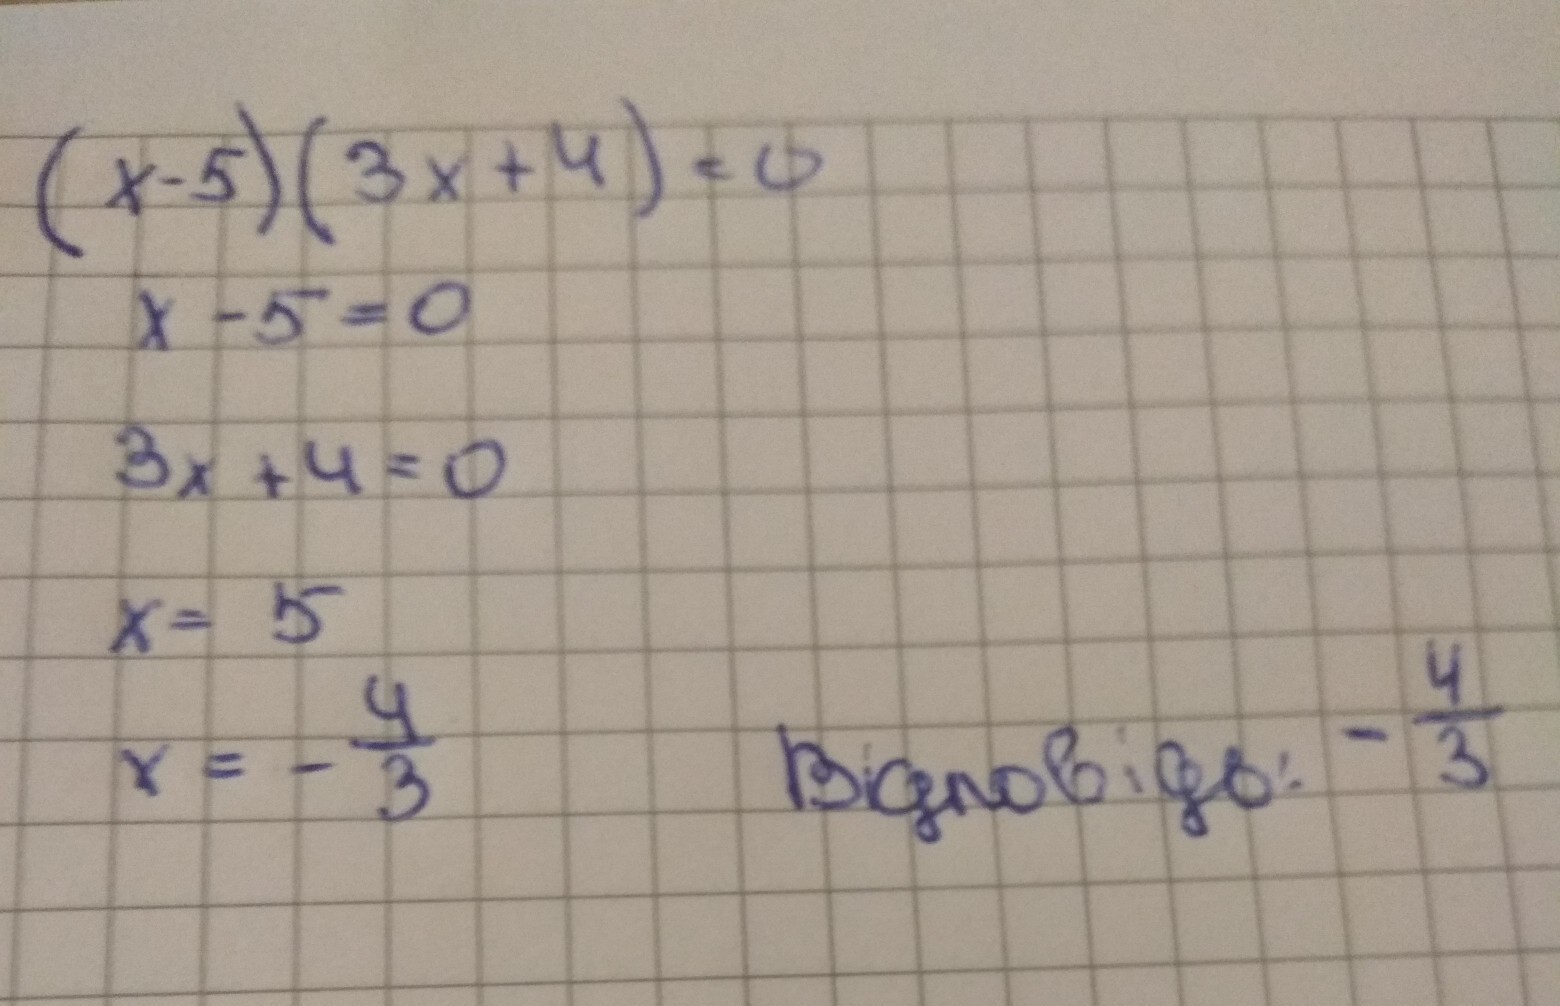 (x-5)(3x+4)=0
x-5=0
3x+4=0
x=5
x=-4/3
Відповідь: -4/3